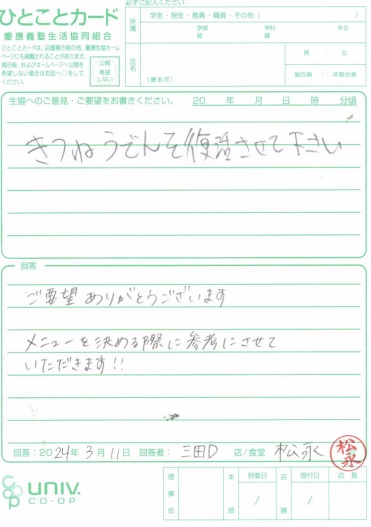 ひとことカード
慶應義塾生活協同組合
ひとことカードは、店頭掲示板の他、慶應生協ホーム
ページにも掲載されることがあります。
掲示板、およびホームページへ公開を
希望しない場合は右記へ○をして
ください。
公開
希望
しない
必ずご記入ください
所属
学生・院生・教員・職員・その他（　　　）
学部　学科　年生
部　課
氏名
（匿名可）
男　・　女
組合員　・　非組合員
生協へのご意見・ご要望をお書きください。　20　年　月　日　時　分頃
きつねうどんを復活させて下さい
回答
ご要望ありがとうございます
メニューを決める際に参考にさせて
いただきます!!
回答：2024年 3月 11日　回答者：三田D　店/食堂　松永
松永
UNIV.
CO-OP
理事会
本部
到着日
/
店舗
受付日
/
店長